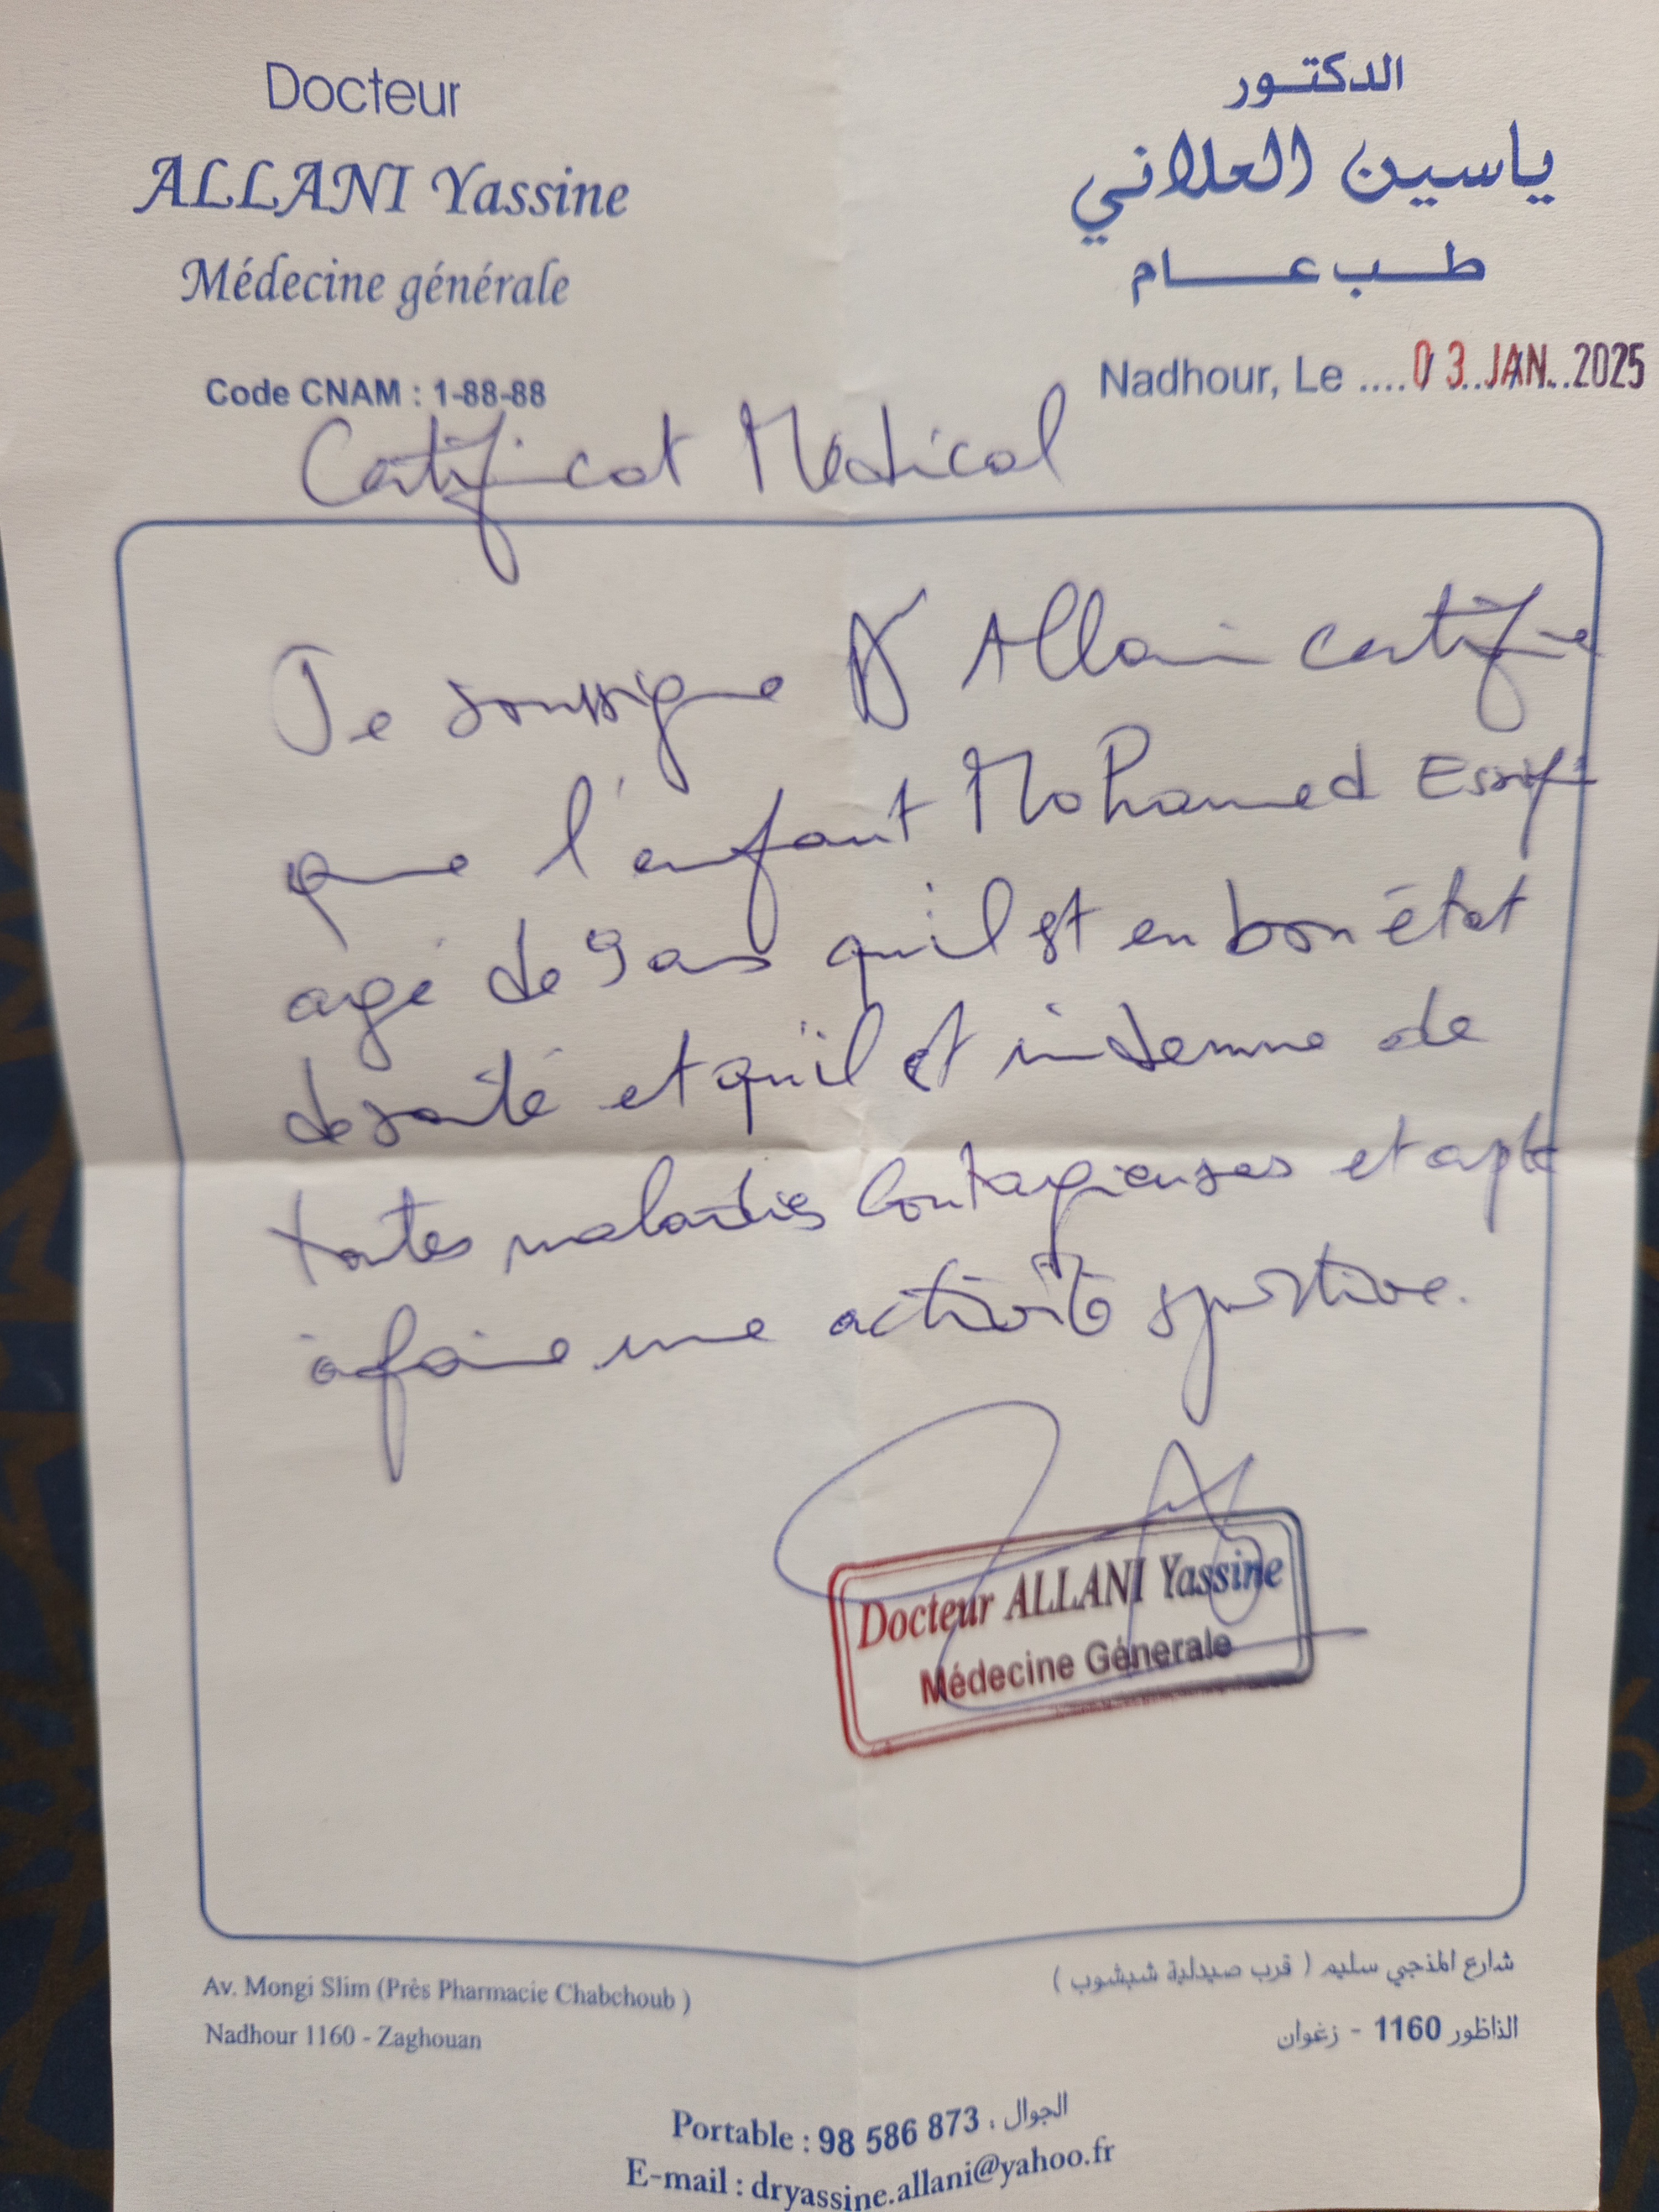 Docteur
ALLANI Yassine
Médecine générale
Code CNAM : 1-88-88
الدكتور
ياسين العلاني
طب عام
Nadhour, Le ....03 JAN. 2025
Certificat Médical
Je soussigne Dr Allani certifie
que l'enfant Mohamed
agé de 9 ans qu'il est en bon état
de santé et qu'il est indemne de
toutes maladies contagieuses et apte
à faire une activité sportive.
Docteur ALLANI Yassine
Médecine Génerale
Av. Mongi Slim (Près Pharmacie Chabchoub )
Nadhour 1160 - Zaghouan
شارع المنجي سليم ( قرب صيدلية شبشوب )
الناظور 1160 - زغوان
Portable : 98 586 873 : الجوال
E-mail : dryassine.allani@yahoo.fr